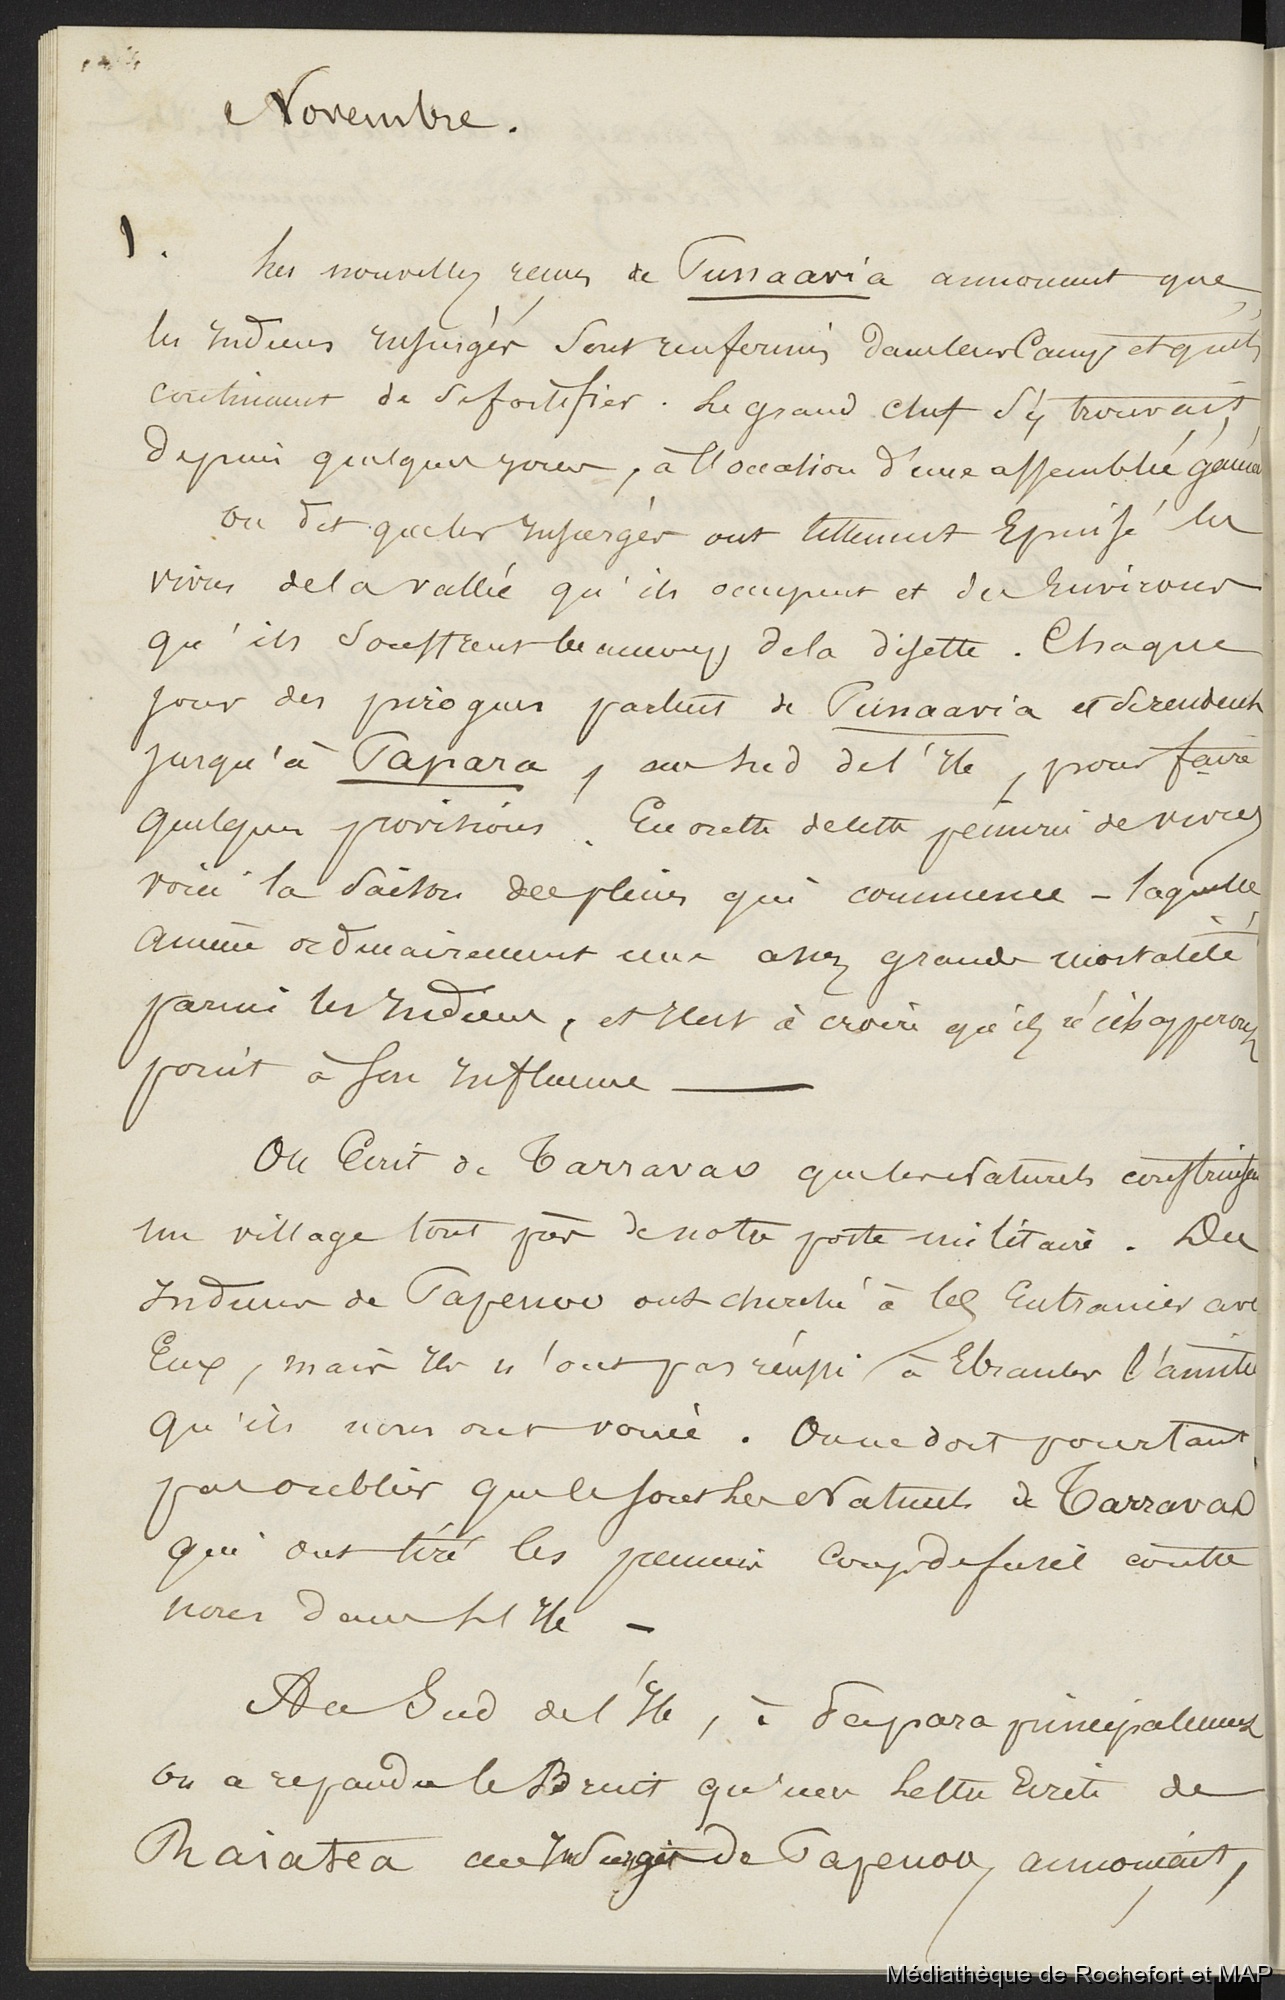 Novembre.
1.
Les nouvelles reçues de Punaavia annoncent que
les Indiens insurgés sont renfermés dans leur Camp et qu'ils
continuent de se fortifier. Le grand chef s'y trouvait
depuis quelques jours, à l'occasion d'une assemblée
On dit que les insurgés ont tellement épuisé les
vivres de la vallée qu'ils occupent et des environs
qu'ils souffrent beaucoup de la disette. Chaque
jour des pirogues partent de Punaavia et se rendent
jusqu'à Papara, au Sud de l'Ile, pour faire
quelques provisions. En outre de cette pénurie de vivres
voici la saison des pluies qui commence - laquelle
amène ordinairement une assez grande mortalité
parmi les Indiens, et il est à croire qu'ils n'échapperont
point à son influence —
On Écrit de Tarravao que les Naturels construisen
un village tout près de notre poste militaire. Des
Indiens de Papenoo ont cherché à les Entrainer ave
Eux, mais ils n'ont pas réussi à Ebranler l'amitié
qu'ils nous ont vouée. On ne doit pourtant
pas oublier que ce sont les Naturels de Tarravao
qui ont tiré les premiers coups de fusil contre
nous dans l'Ile -
Au Sud de l'Ile, à Papara principalement
on a repandu le Bruit qu'une Lettre Ecrite de
Raiatea aux Insurgés de Papenoo, annonçait,
Médiathèque de Rochefort et MAP